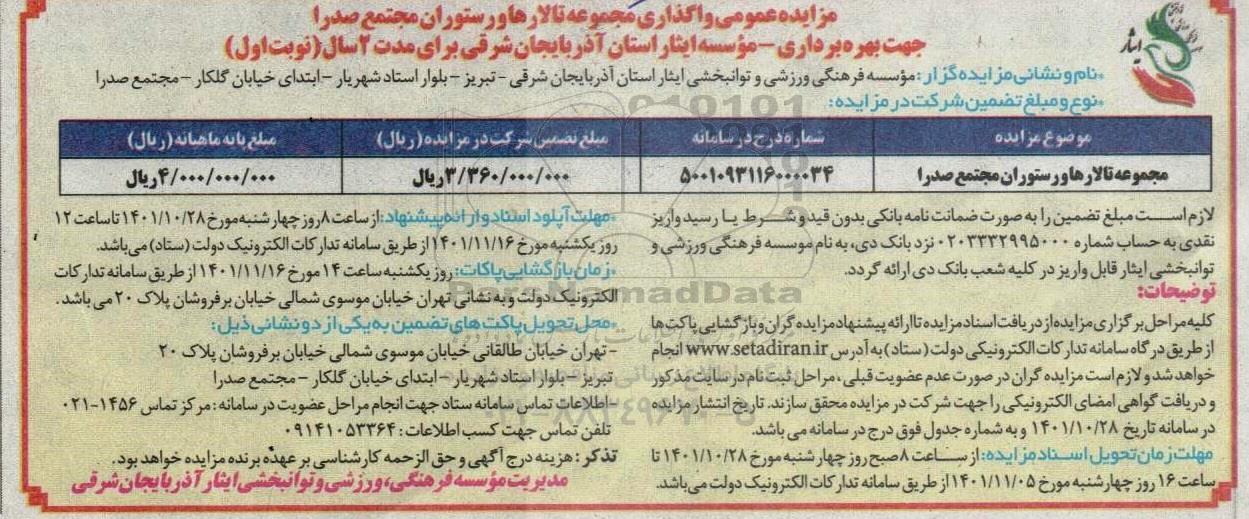 مزایده عمومی واگذاری مجموعه تالارها و رستوران مجتمع صدرا
جهت بهره برداری - مؤسسه ایثار استان آذربایجان شرقی برای مدت ۲ سال (نوبت اول)
ایثار
*نام و نشانی مزایده گزار: مؤسسه فرهنگی ورزشی و توانبخشی ایثار استان آذربایجان شرقی - تبریز - بلوار استاد شهریار - ابتدای خیابان گلکار - مجتمع صدرا
*نوع و مبلغ تضمین شرکت در مزایده:
موضوع مزایده | شماره درج در سامانه | مبلغ تضمین شرکت در مزایده (ریال) | مبلغ پایه ماهیانه (ریال)
مجموعه تالارها و رستوران مجتمع صدرا | ۵۰۰۱۰۹۳۱۱۶۰۰۰۰۳۴ | ۳/۳۶۰/۰۰۰/۰۰۰ ریال | ۴/۰۰۰/۰۰۰/۰۰۰ ریال
لازم است مبلغ تضمین را به صورت ضمانت نامه بانکی بدون قید و شرط یا رسید واریز
نقدی به حساب شماره ۰۲۰۳۳۳۲۹۹۵۰۰۰ نزد بانک دی، به نام موسسه فرهنگی ورزشی و
توانبخشی ایثار قابل واریز در کلیه شعب بانک دی ارائه گردد.
توضیحات:
کلیه مراحل برگزاری مزایده از دریافت اسناد مزایده تا ارائه پیشنهاد مزایده گران و بازگشایی پاکت ها
از طریق درگاه سامانه تدارکات الکترونیکی دولت (ستاد) به آدرس www.setadiran.ir انجام
خواهد شد و لازم است مزایده گران در صورت عدم عضویت قبلی، مراحل ثبت نام در سایت مذکور
و دریافت گواهی امضای الکترونیکی را جهت شرکت در مزایده محقق سازند. تاریخ انتشار مزایده
در سامانه تاریخ ۱۴۰۱/۱۰/۲۸ و به شماره جدول فوق درج در سامانه می باشد.
مهلت زمان تحویل اسناد مزایده: از ساعت ۸ صبح روز چهارشنبه مورخ ۱۴۰۱/۱۰/۲۸ تا
ساعت ۱۶ روز چهارشنبه مورخ ۱۴۰۱/۱۱/۰۵ از طریق سامانه تدارکات الکترونیک دولت می‌باشد.
*مهلت آپلود اسناد و ارائه پیشنهاد: از ساعت ۸ روز چهارشنبه مورخ ۱۴۰۱/۱۰/۲۸ تا ساعت ۱۲
روز یکشنبه مورخ ۱۴۰۱/۱۱/۱۶ از طریق سامانه تدارکات الکترونیک دولت (ستاد) می‌باشد.
*زمان بازگشایی پاکات: روز یکشنبه ساعت ۱۴ مورخ ۱۴۰۱/۱۱/۱۶ از طریق سامانه تدارکات
الکترونیک دولت و به نشانی تهران خیابان موسوی شمالی خیابان برفروشان پلاک ۲۰ می باشد.
*محل تحویل پاکت های تضمین به یکی از دو نشانی ذیل:
- تهران خیابان طالقانی خیابان موسوی شمالی خیابان برفروشان پلاک ۲۰
تبریز - بلوار استاد شهریار - ابتدای خیابان گلکار - مجتمع صدرا
-اطلاعات تماس سامانه ستاد جهت انجام مراحل عضویت در سامانه: مرکز تماس ۱۴۵۶-۰۲۱
تلفن تماس جهت کسب اطلاعات: ۰۹۱۴۱۰۵۳۳۶۴
تذکر: هزینه درج آگهی و حق الزحمه کارشناسی بر عهده برنده مزایده خواهد بود.
مدیریت مؤسسه فرهنگی، ورزشی و توانبخشی ایثار آذربایجان شرقی
ParsNamadData